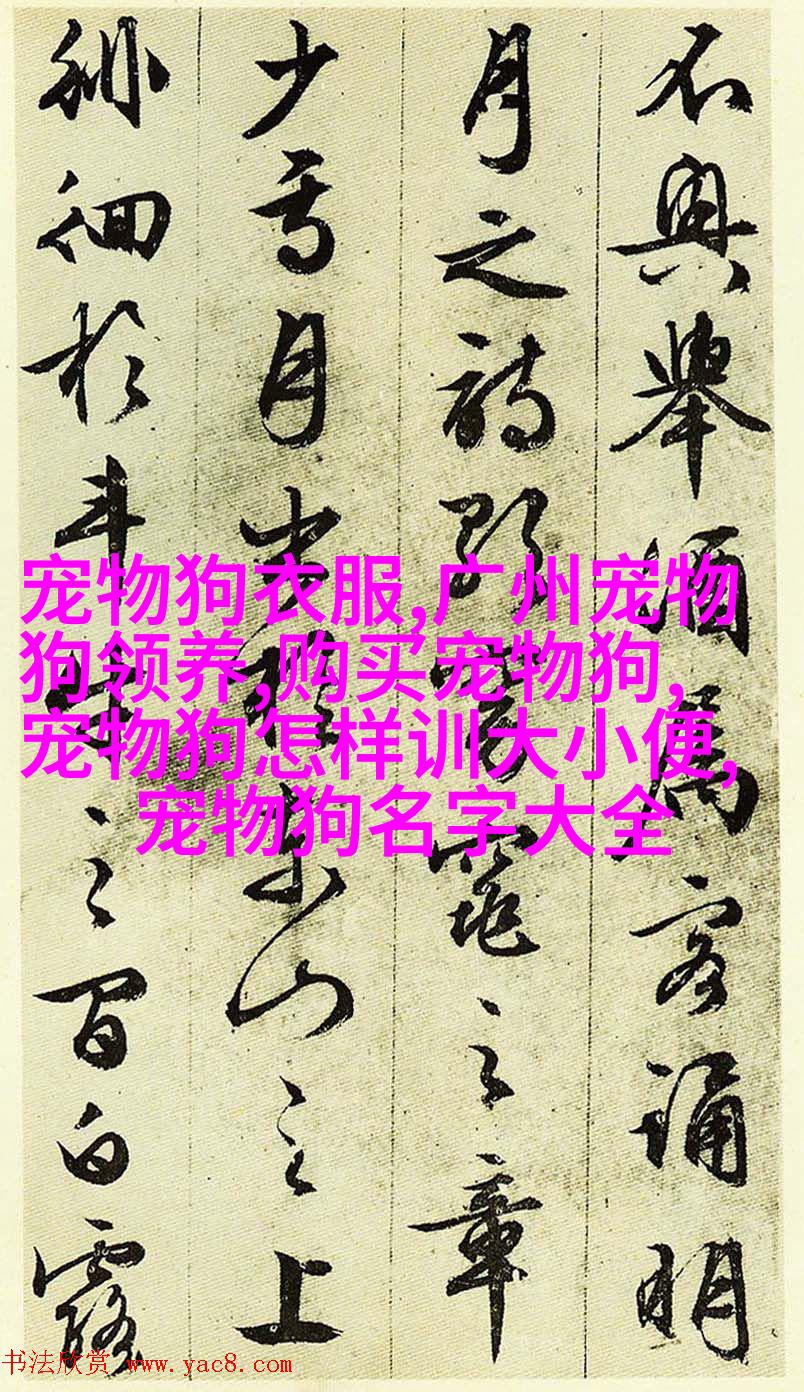 不興舉酒屬客誦明
月之詩歌窈窕之章
少焉月出於東山之上
徘徊於斗牛之間白露
宠物狗衣服,广州宠物
狗领养,购买宠物狗,
宠物狗怎样训大小便,
宠物狗名字大全
书法欣赏 www.yac8.com